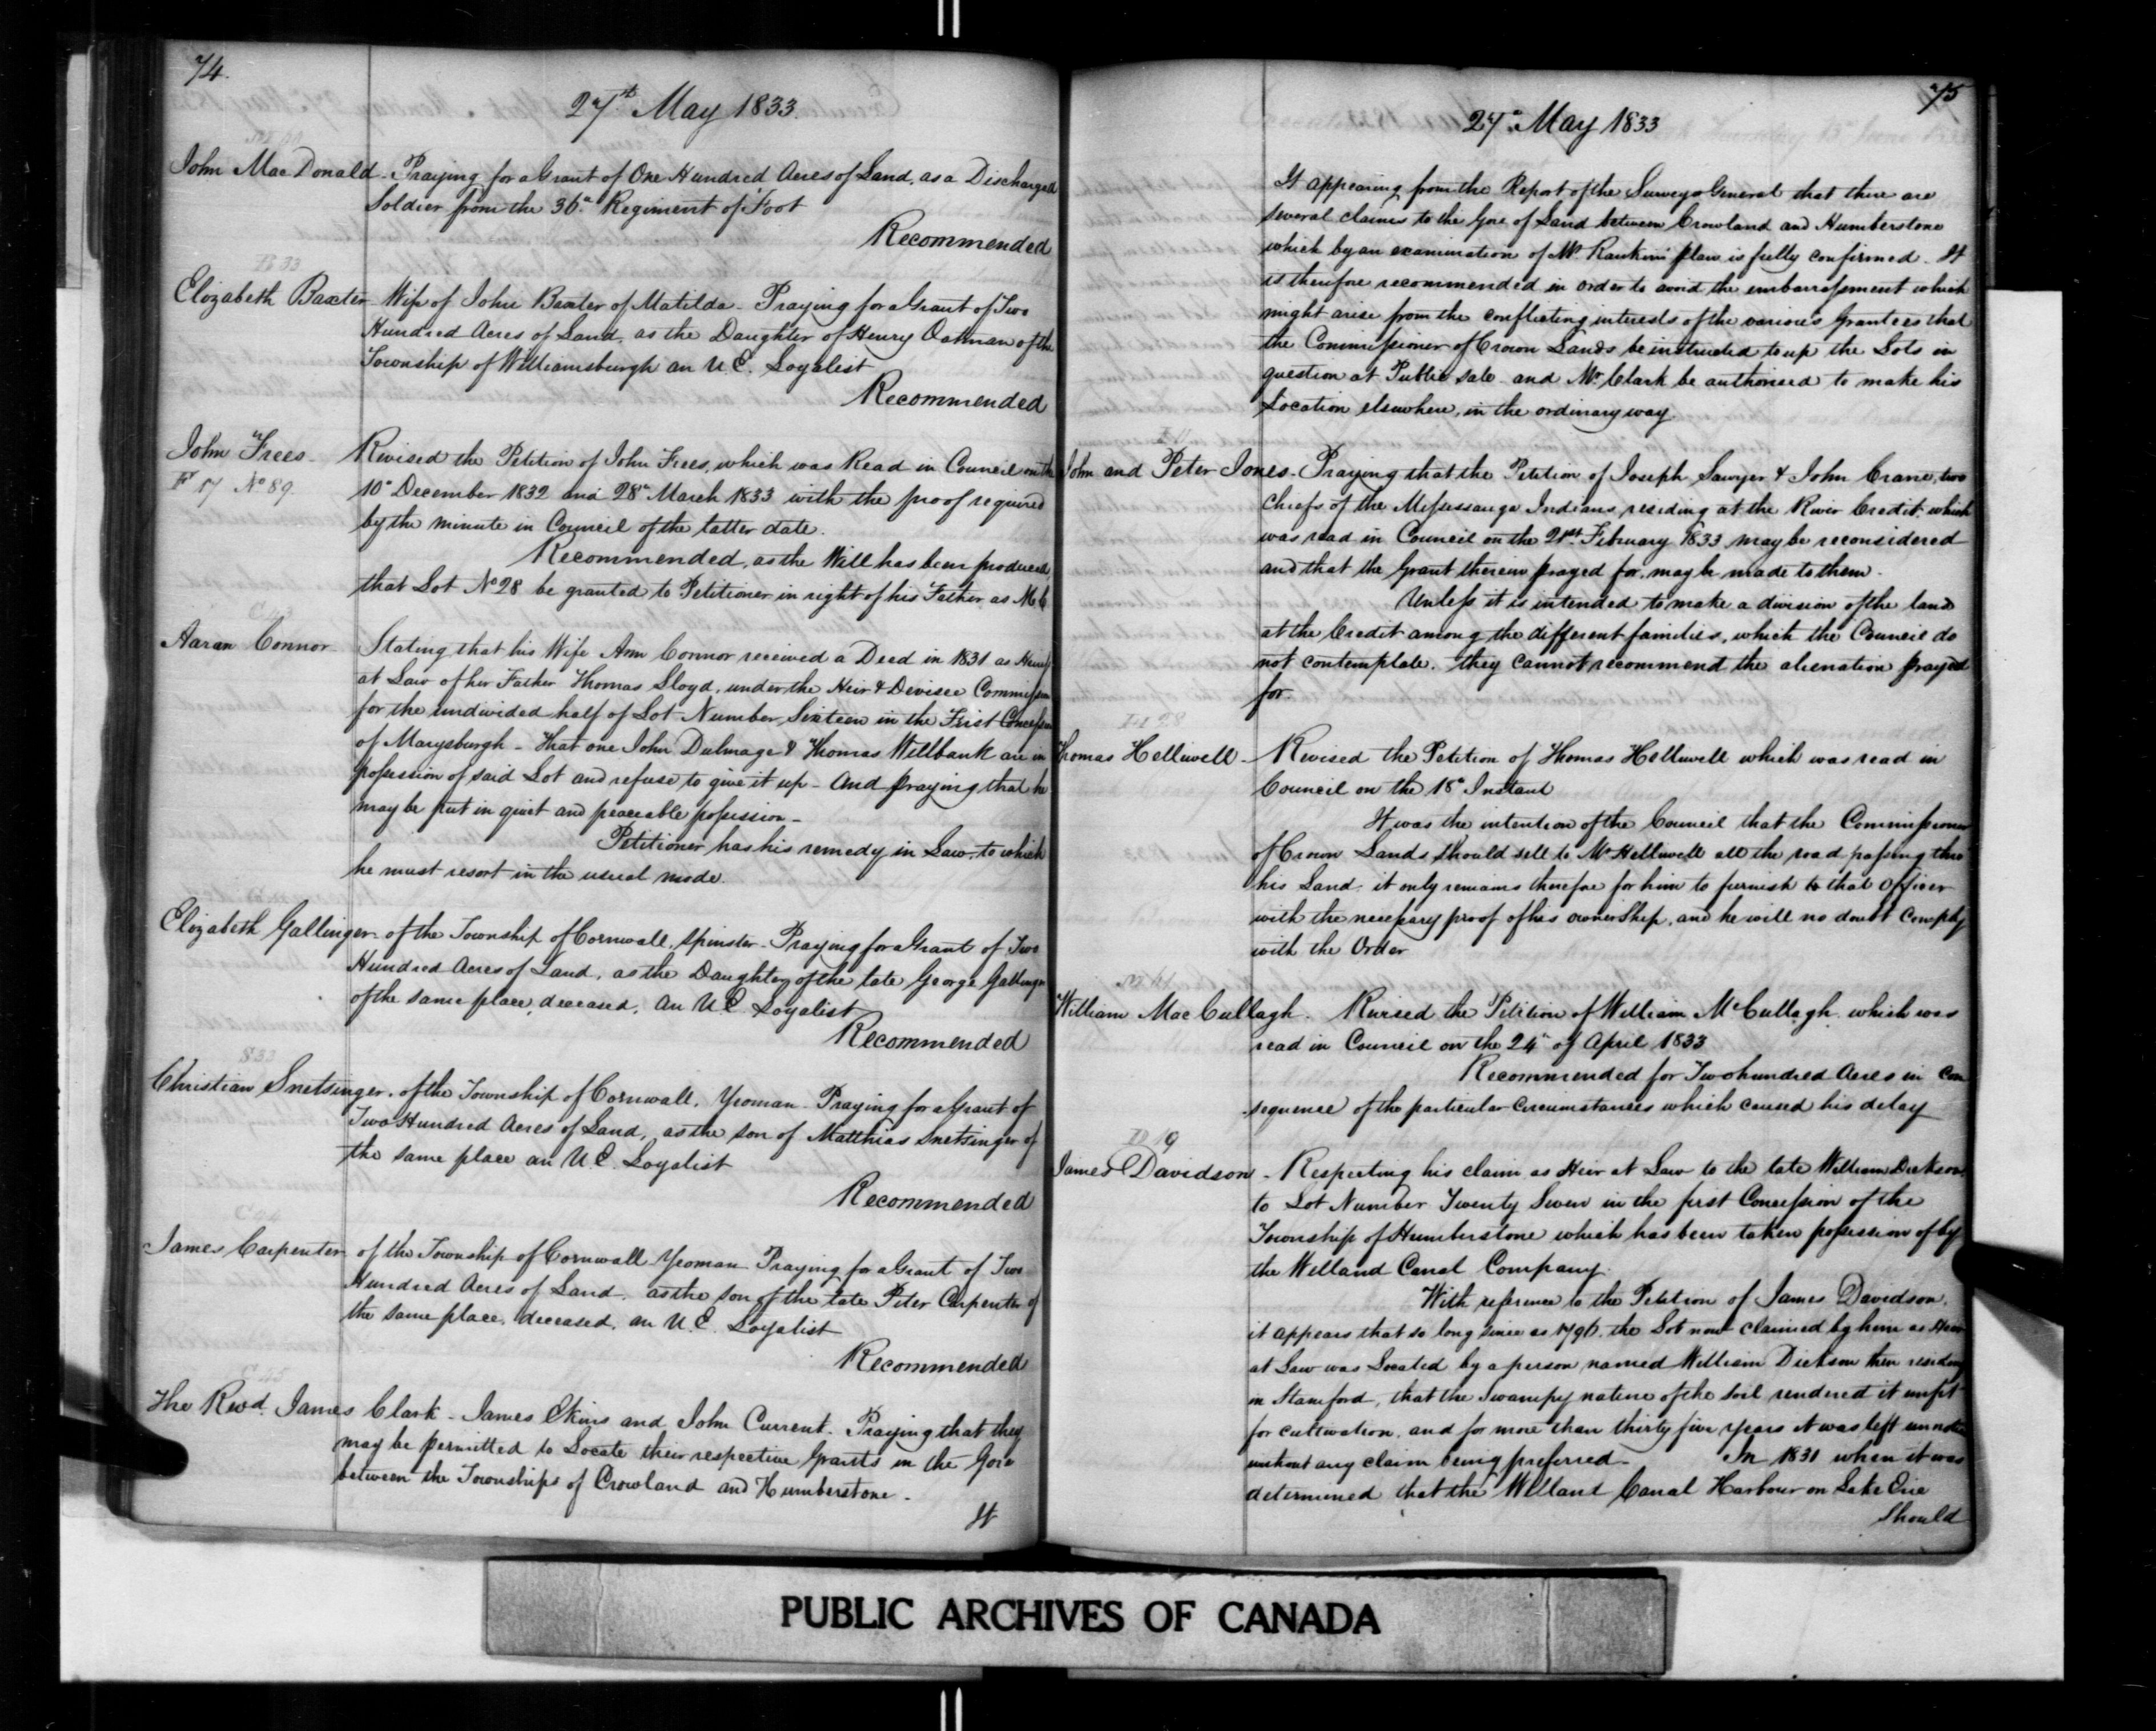 74.
27th May 1833.
John MacDonald - Praying for a Grant of One Hundred Acres of Land, as a Discharged
Soldier from the 36th Regiment of Foot
Recommended
B 33
Elizabeth Baxter - Wife of John Baxter of Matilda - Praying for a Grant of Two
Hundred Acres of Land, as the Daughter of Henry Oatman of the
Township of Williamsburgh an U.E. Loyalist
Recommended
John Frees - Revised the Petition of John Frees, which was Read in Council on the
F 17 No 89. 10th December 1832 and 28th March 1833 with the proof required
by the minute in Council of the latter date.
Recommended, as the Will has been produced,
that Lot No 28 be granted to Petitioner in right of his Father as M C
Aaran Connor Stating that his Wife Ann Connor received a Deed in 1831 as
at Law of her Father Thomas Lloyd, under the Heir & Devisee Commission
for the undivided half of Lot Number Sixteen in the First Concession
of Marysburgh - That one John Dulmage & Thomas Wellbank are in
possession of said Lot and refuse to give it up - And praying that he
may be put in quiet and peaceable possession -
Petitioner has his remedy in Law, to which
he must resort in the usual mode.
Elizabeth Gallinger - of the Township of Cornwall, Spinster - Praying for a Grant of Two
Hundred Acres of Land, as the Daughter of the late George Gallinger
of the same place, deceased, an U.E. Loyalist
Recommended
Christian Snetsinger, of the Township of Cornwall, Yeoman - Praying for a Grant of
Two Hundred Acres of Land, as the son of Matthias Snetsinger of
the same place an U.E. Loyalist
Recommended
James Carpenter of the Township of Cornwall Yeoman Praying for a Grant of Two
Hundred Acres of Land, as the son of the late Peter Carpenter of
the same place, deceased, an U.E. Loyalist
Recommended
The Revd. James Clark - James Ekins and John Current - Praying that they
may be permitted to Locate their respective Grants in the Gore
between the Townships of Crowland and Humberstone -
It
75
27th May 1833
It appearing from the Report of the Surveyor General that there are
several claims to the Gore of Land between Crowland and Humberstone
which by an examination of Mr Rankins plan is fully confirmed - It
is therefore recommended in order to avoid the embarrassment which
might arise from the conflicting interests of the various Grantees that
the Commissioner of Crown Lands be instructed to up the Lots in
question at Public sale - and Mr Clark be authorised to make his
Location elsewhere, in the ordinary way
John and Peter Jones - Praying that the Petition of Joseph Sawyer & John Crane, two
Chiefs of the Missisauga Indians, residing at the River Credit, which
was read in Council on the 21st February 1833 may be reconsidered
and that the Grant therein prayed for, may be made to them -
Unless it is intended to make a division of the land
at the Credit among the different families, which the Council do
not contemplate, they cannot recommend the alienation prayed
for.
Thomas Helliwell - Revised the Petition of Thomas Helliwell which was read in
Council on the 18th Instant
It was the intention of the Council that the Commissioner
of Crown Lands should sell to Mr Helliwell all the road passing thro'
his Land, it only remains therefore for him to furnish to that Officer
with the necessary proof of his ownership, and he will no doubt comply
with the Order
William MacCullagh - Revised the Petition of William McCullagh which was
read in Council on the 24th of April 1833
Recommended for Two hundred Acres in con
sequence of the particular circumstances which caused his delay
D 19
James Davidson - Respecting his claim as Heir at Law to the late William Dickson,
to Lot Number Twenty Seven in the first Concession of the
Township of Humberstone which has been taken possession of by
the Welland Canal Company.
With reference to the Petition of James Davidson,
it appears that so long since as 1796, the Lot now claimed by him as Heir
at Law was Located by a person named William Dickson then residing
in Stamford, that the Swampy nature of the soil rendered it unfit
for cultivation, and for more than thirty five years it was left unnoticed
without any claim being preferred - In 1831 when it was
determined that the Welland Canal Harbour on Lake Erie
should
PUBLIC ARCHIVES OF CANADA